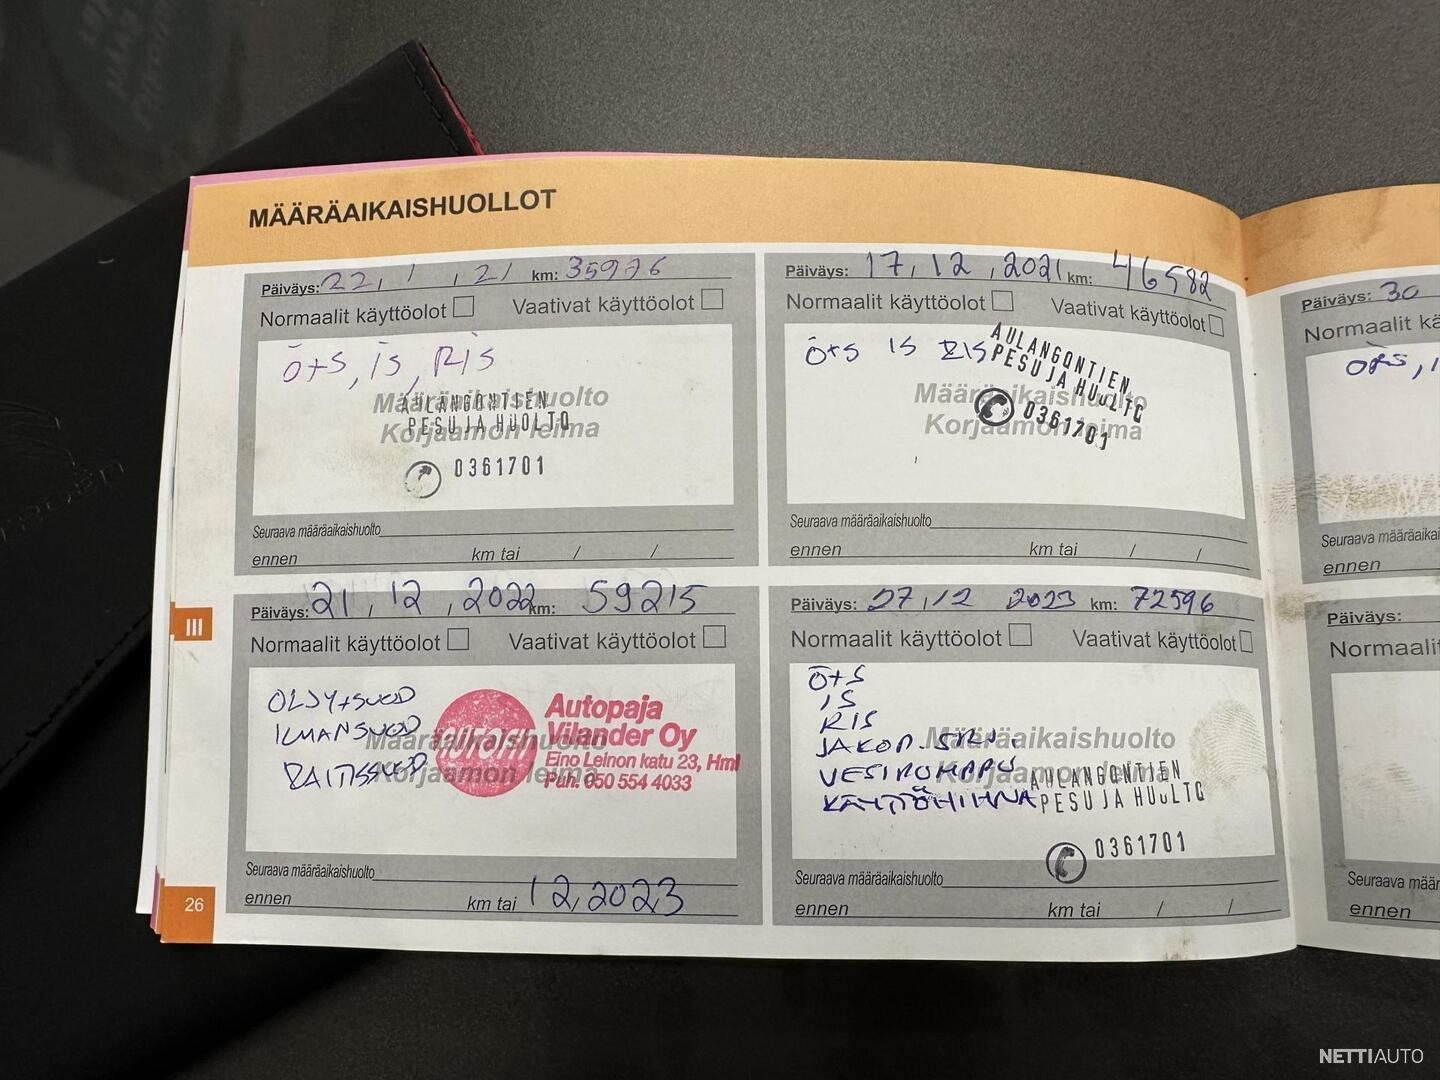 MÄÄRÄAIKAISHUOLLOT
Päiväys: 22, 1, 21 km: 35976
Normaalit käyttöolot Vaativat käyttöolot
Ö+S, IS, RIS
Määräaikaishuolto
Korjaamon leima
AULANGONTIEN
PESU JA HUOLTO
0361701
Seuraava määräaikaishuolto
ennen km tai / /
Päiväys: 17, 12, 2021 km: 46582
Normaalit käyttöolot Vaativat käyttöolot
Ö+S IS RIS
Määräaikaishuolto
Korjaamon leima
AULANGONTIEN
PESU JA HUOLTO
0361701
Seuraava määräaikaishuolto
ennen km tai / /
Päiväys: 21, 12, 2022 km: 59215
Normaalit käyttöolot Vaativat käyttöolot
ÖLJY+SUOD
ILMANSUOD
RAITISSUOD
Määräaikaishuolto
Korjaamon leima
Autopaja
Vilander Oy
Eino Leinon katu 23, Hml
Puh. 050 554 4033
Seuraava määräaikaishuolto
ennen km tai 12,2023
Päiväys: 27,12 2023 km: 72596
Normaalit käyttöolot Vaativat käyttöolot
Ö+S
IS
RIS
JAKOP.
VESIPUMPPU
KÄYTTÖHIHNA
Määräaikaishuolto
Korjaamon leima
AULANGONTIEN
PESU JA HUOLTO
0361701
Seuraava määräaikaishuolto
ennen km tai / /
III
26
Päiväys: 30
Normaalit kä
Ö+S,
Seuraava määräaika
ennen
Päiväys:
Normaalit
Seuraava määr
ennen
NETTIAUTO